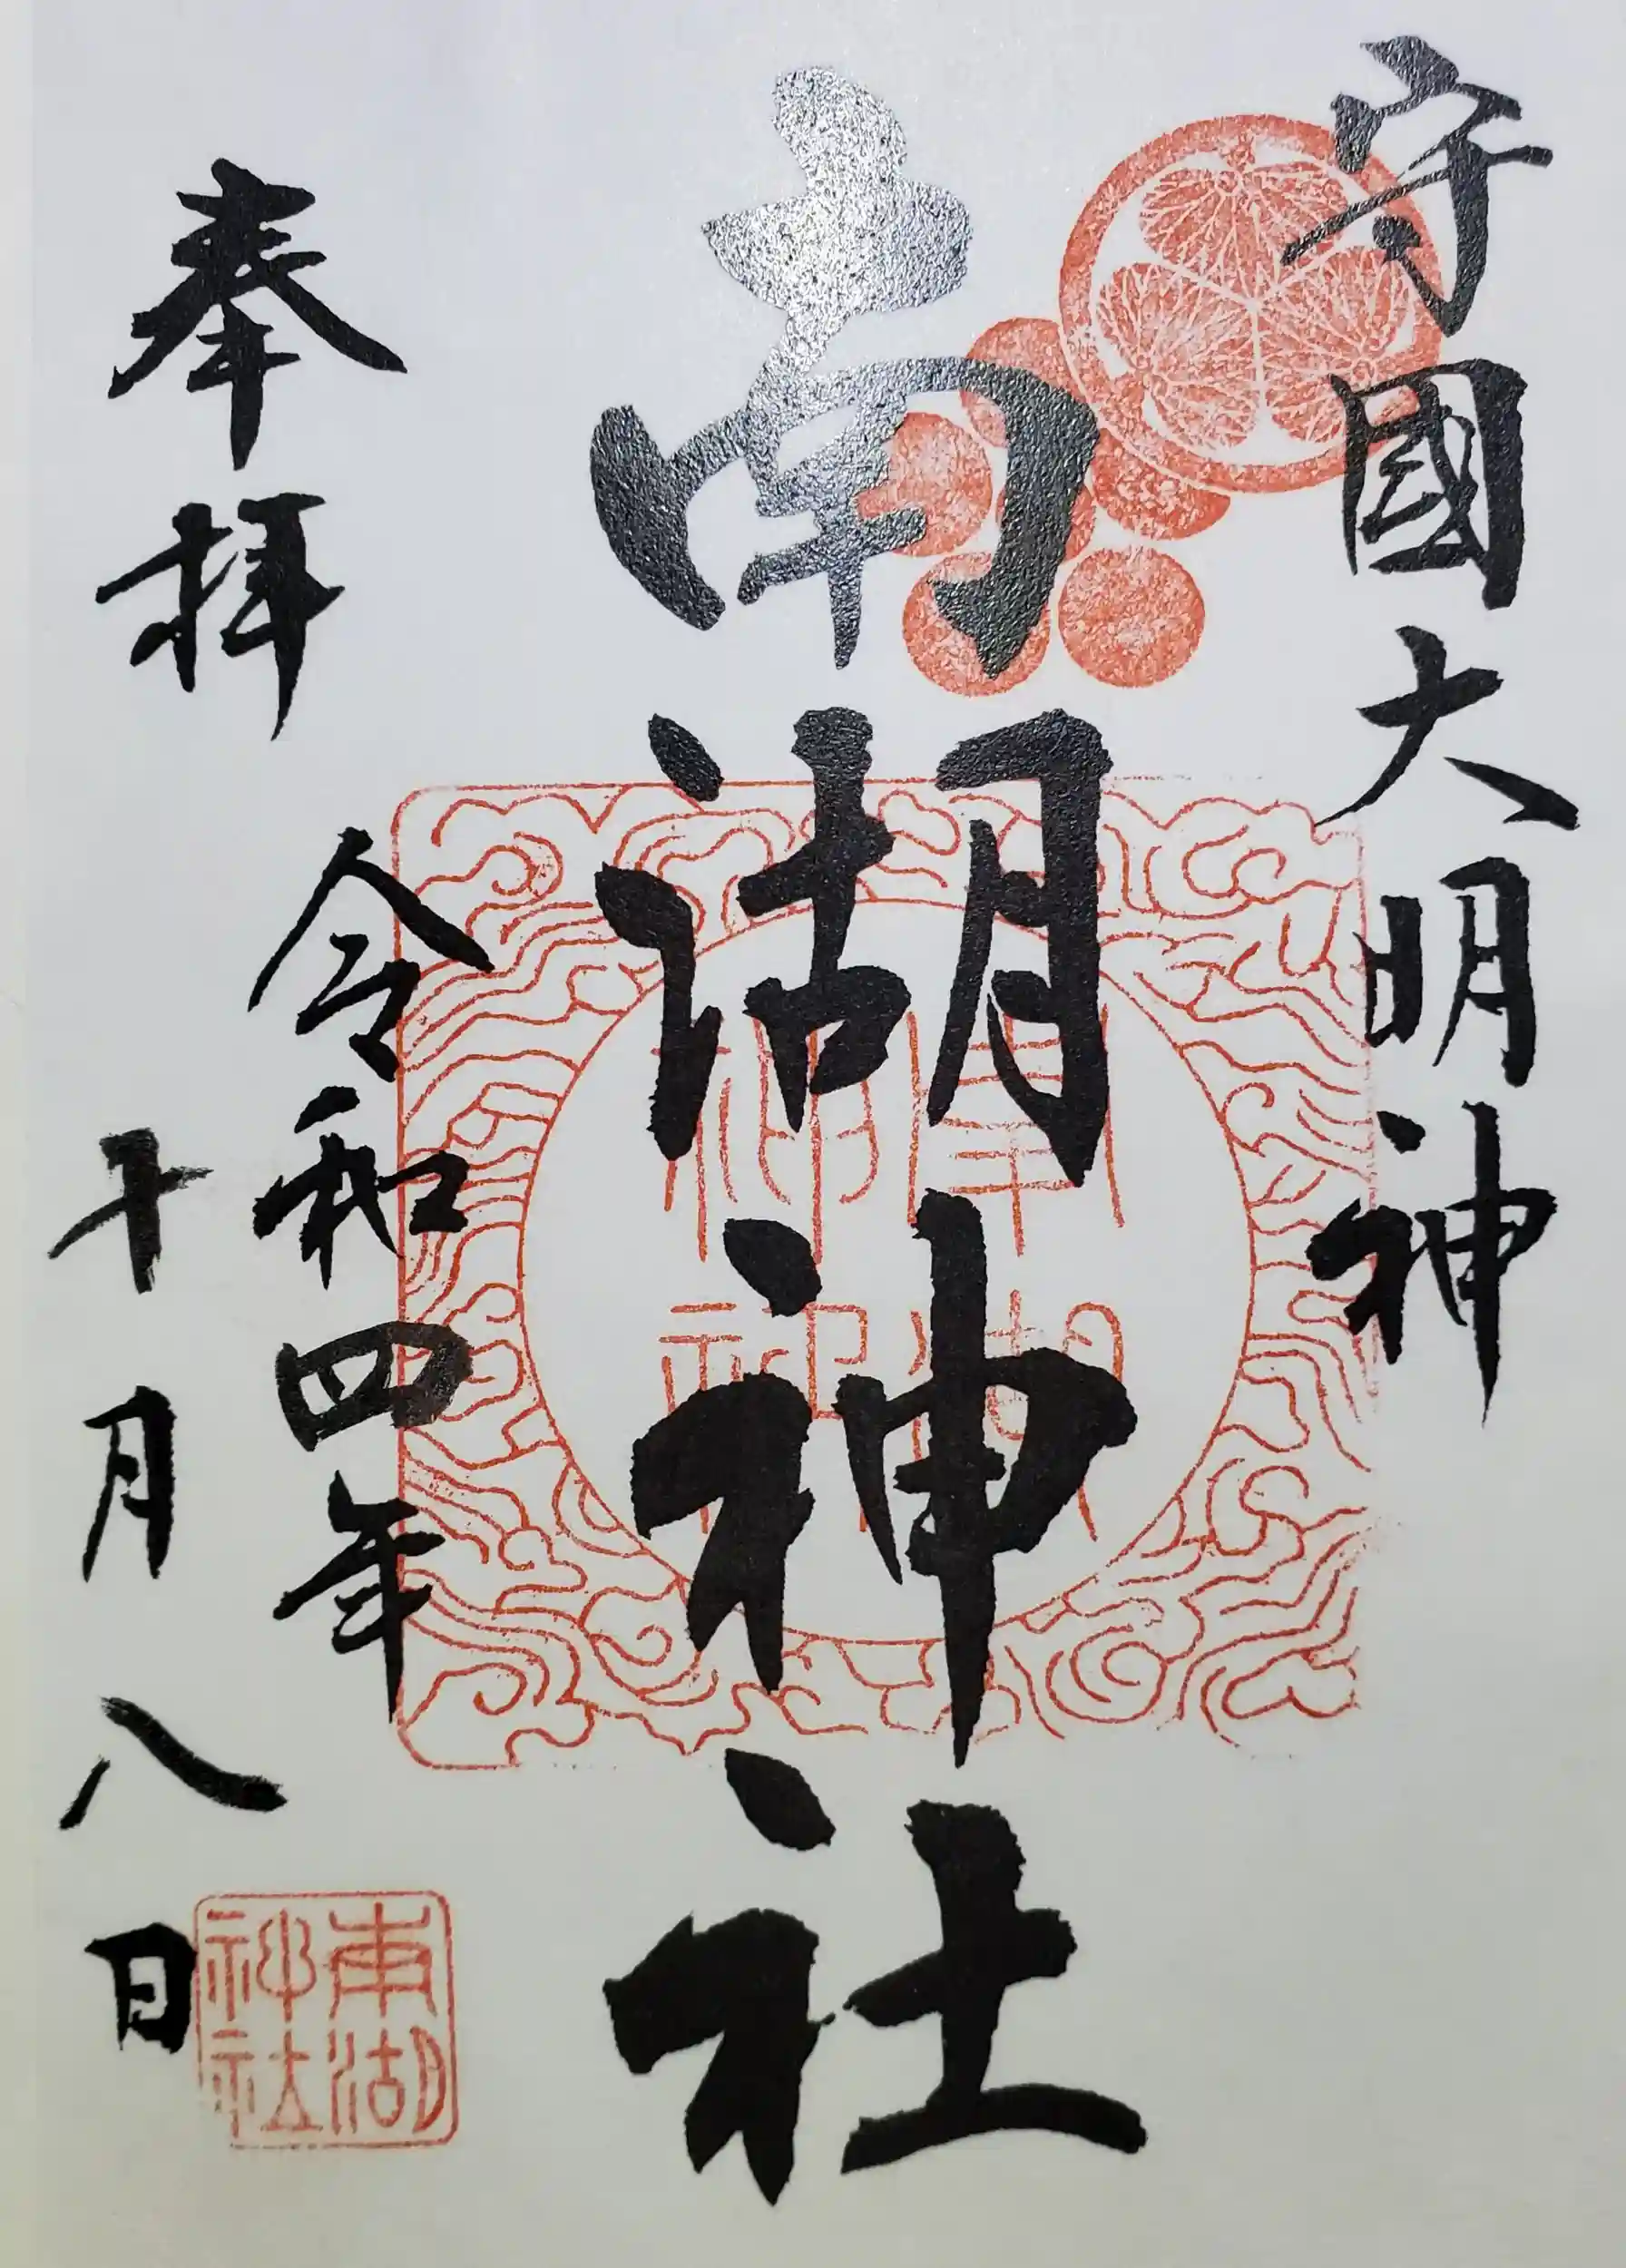 守國大明神
南湖神社
奉拝
令和四年
十月八日
南湖
神社